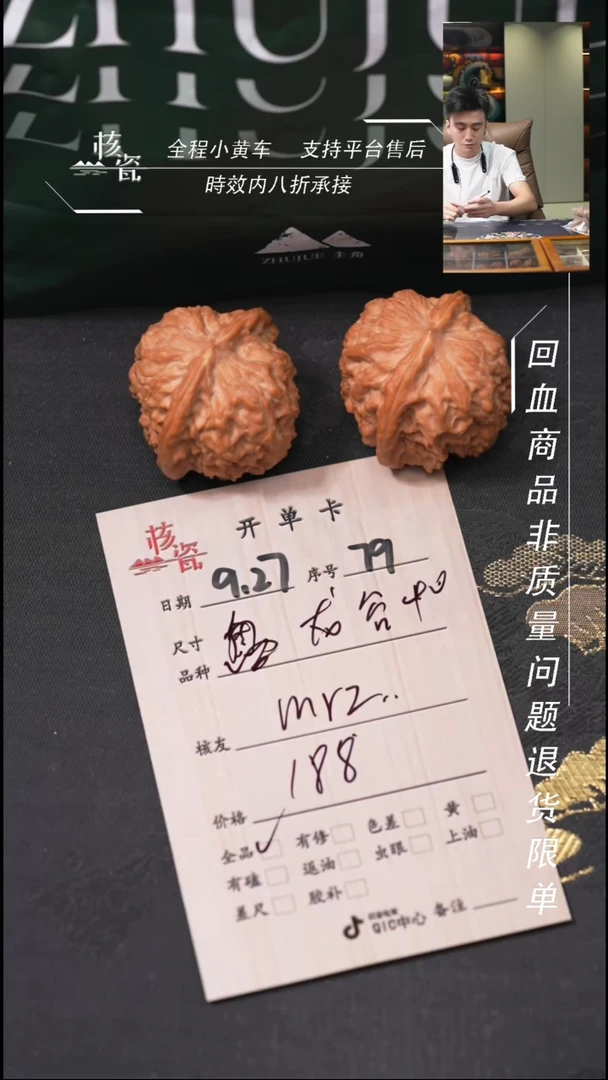 ZHUJUE
ZHUJUE
核瓷
全程小黄车 支持平台售后
時效内八折承接
ZHUJUE 主角
回血商品非质量问题退货限单
核瓷
开单卡
日期 9.27 序号 79
尺寸
品种
核友 mrz..
价格 188
全品 ✓ 有修 色差 黄
有磕 返油 虫眼 上油
差尺 胶补
QIC中心 备注